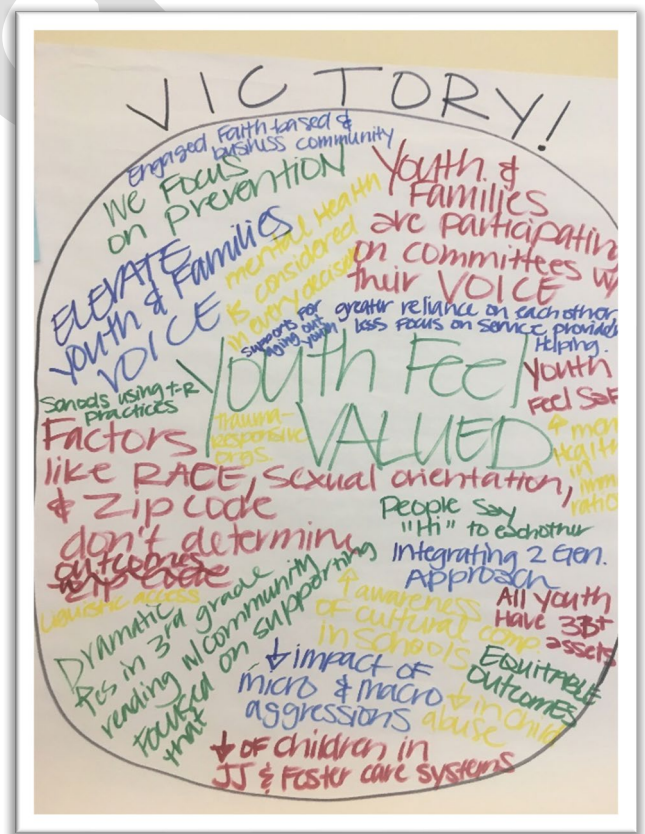 VICTORY!
Engaged Faith based &
business community
We Focus
on prevention
Youth &
Families
are participatin
on committees w/
their VOICE
ELEVATE
Youth & Families
VOICE
mental Health
is considered
in every decision
supports for
aging out
youth
greater reliance on each other
less focus on service provid
Helping.
Youth Feel
VALUED
Youth
Feel Saf
Schools using t-R
practices
Trauma-
Responsive
orgs.
↑ men
Health
in
imm
ratio
Factors
like RACE, Sexual orientation,
& Zip code
don't determine
outcomes
Zip code
People say
"Hi" to eachother
Integrating 2 Gen.
Approach
Linguistic access
↑ awareness
of cultural comp.
in schools
All youth
Have 35+
assets
Dramatic
Pos in 3rd grade
reading w/community
focused on supporting
that
↓ impact of
micro & macro
aggressions
EQUITABLE
OUTCOMES
↓ in child
abuse
↓ of children in
JJ & Foster care systems